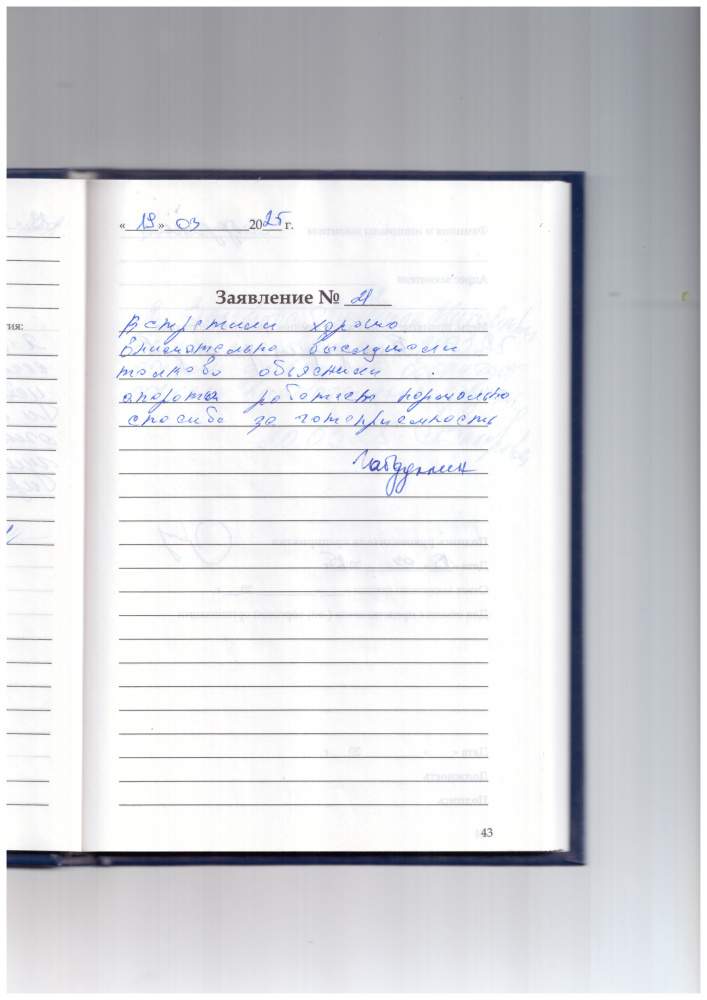 « 19 » 03 2025 г.
Заявление № 21
Встретили хорошо
внимательно выслушали
толково объяснили.
апараты работает нормально
спосибо за готеприемность
тия:
43